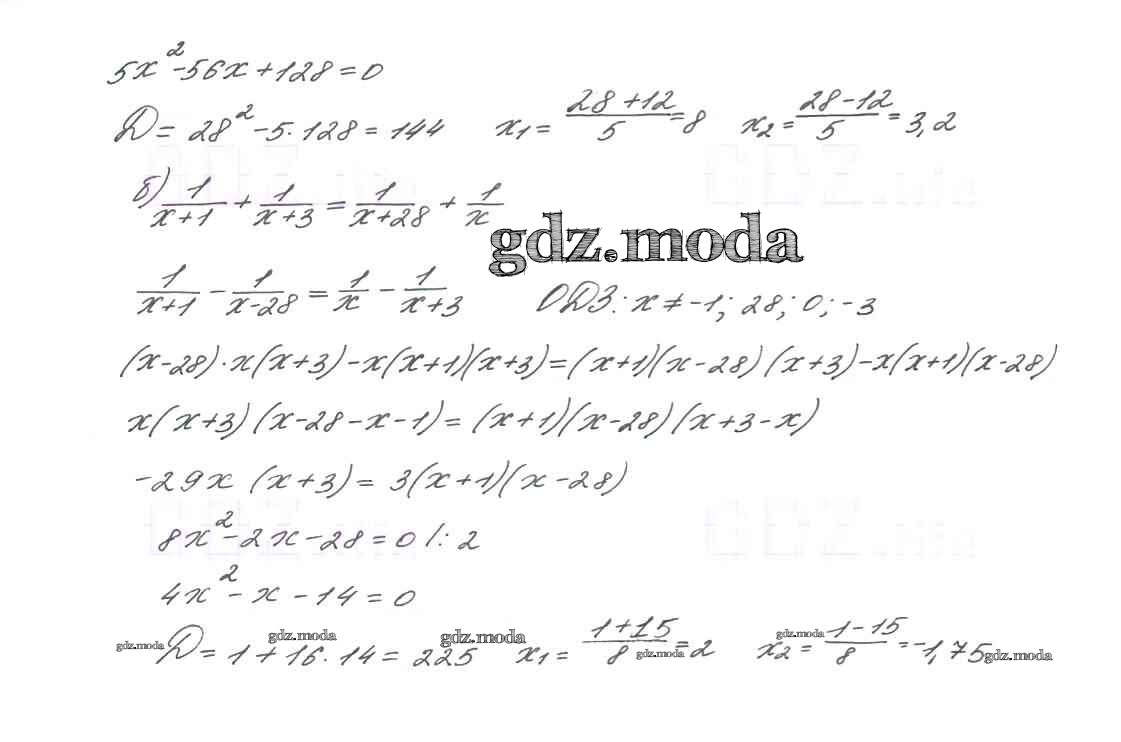 5x² - 56x + 128 = 0
D = 28² - 5·128 = 144 x₁ = (28+12)/5 = 8 x₂ = (28-12)/5 = 3,2
б) 1/(x+1) + 1/(x+3) = 1/(x+28) + 1/x
gdz.moda
1/(x+1) - 1/(x-28) = 1/x - 1/(x+3) ОДЗ: x ≠ -1; 28; 0; -3
(x-28)·x(x+3) - x(x+1)(x+3) = (x+1)(x-28)(x+3) - x(x+1)(x-28)
x(x+3)(x-28-x-1) = (x+1)(x-28)(x+3-x)
-29x (x+3) = 3(x+1)(x-28)
8x² - 2x - 28 = 0 /: 2
4x² - x - 14 = 0
gdz.moda gdz.moda gdz.moda gdz.moda gdz.moda gdz.moda
D = 1 + 16·14 = 225 x₁ = (1+15)/8 = 2 x₂ = (1-15)/8 = -1,75